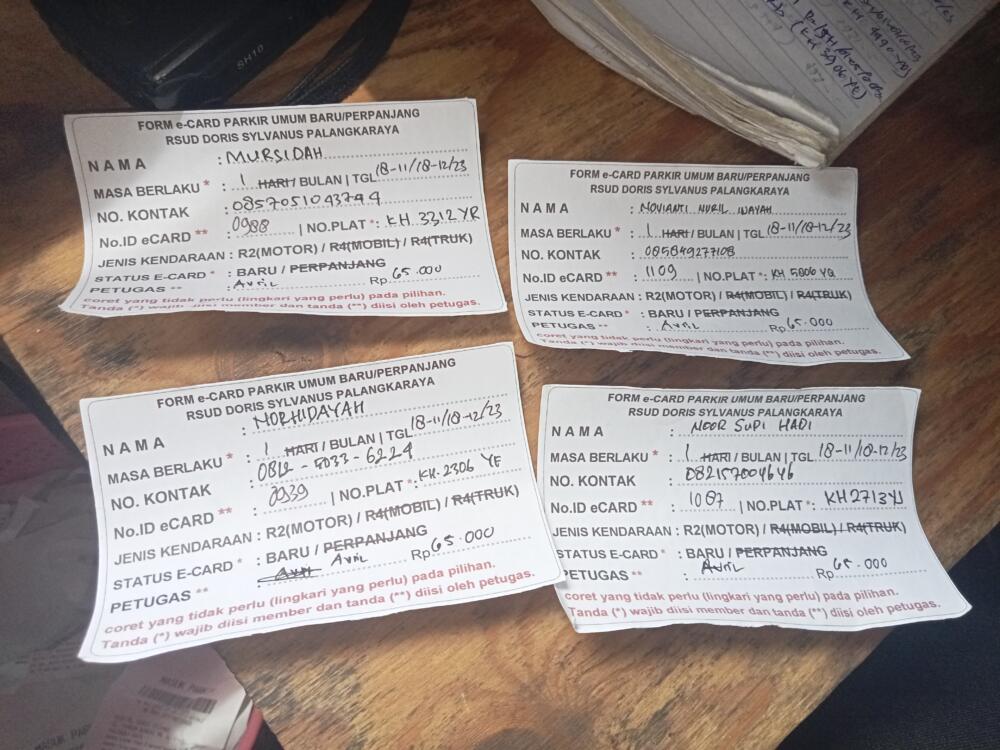 SH10
FORM e-CARD PARKIR UMUM BARU/PERPANJANG
RSUD DORIS SYLVANUS PALANGKARAYA
NAMA : MURSIDAH
MASA BERLAKU * : 1 HARI / BULAN | TGL 18-11/18-12/23
NO. KONTAK : 0857051043744
No.ID eCARD ** : 0988 | NO.PLAT *: KH 3312 YR
JENIS KENDARAAN : R2(MOTOR) / R4(MOBIL) / R4(TRUK)
STATUS E-CARD * : BARU / PERPANJANG
PETUGAS ** : Avril Rp 65.000
coret yang tidak perlu (lingkari yang perlu) pada pilihan.
Tanda (*) wajib diisi member dan tanda (**) diisi oleh petugas.
FORM e-CARD PARKIR UMUM BARU/PERPANJANG
RSUD DORIS SYLVANUS PALANGKARAYA
NAMA : NOVIANTI NURIL INAYAH
MASA BERLAKU * : 1 HARI / BULAN | TGL 18-11/18-12/23
NO. KONTAK : 085849277108
No.ID eCARD ** : 1109 | NO.PLAT *: KH 5806 YQ
JENIS KENDARAAN : R2(MOTOR) / R4(MOBIL) / R4(TRUK)
STATUS E-CARD * : BARU / PERPANJANG
PETUGAS ** : Avril Rp 65.000
coret yang tidak perlu (lingkari yang perlu) pada pilihan.
Tanda (*) wajib diisi member dan tanda (**) diisi oleh petugas.
FORM e-CARD PARKIR UMUM BARU/PERPANJANG
RSUD DORIS SYLVANUS PALANGKARAYA
NAMA : NORHIDAYAH
MASA BERLAKU * : 1 HARI / BULAN | TGL 18-11/18-12/23
NO. KONTAK : 0812-5033-6224
No.ID eCARD ** : 0939 | NO.PLAT *: KH-2306 YF
JENIS KENDARAAN : R2(MOTOR) / R4(MOBIL) / R4(TRUK)
STATUS E-CARD * : BARU / PERPANJANG
PETUGAS ** : Avril Rp 65.000
coret yang tidak perlu (lingkari yang perlu) pada pilihan.
Tanda (*) wajib diisi member dan tanda (**) diisi oleh petugas.
FORM e-CARD PARKIR UMUM BARU/PERPANJANG
RSUD DORIS SYLVANUS PALANGKARAYA
NAMA : NOOR SUPI HADI
MASA BERLAKU * : 1 HARI / BULAN | TGL 18-11/18-12/23
NO. KONTAK : 082157004646
No.ID eCARD ** : 1087 | NO.PLAT *: KH 2713 YJ
JENIS KENDARAAN : R2(MOTOR) / R4(MOBIL) / R4(TRUK)
STATUS E-CARD * : BARU / PERPANJANG
PETUGAS ** : Avril Rp 65.000
coret yang tidak perlu (lingkari yang perlu) pada pilihan.
Tanda (*) wajib diisi member dan tanda (**) diisi oleh petugas.